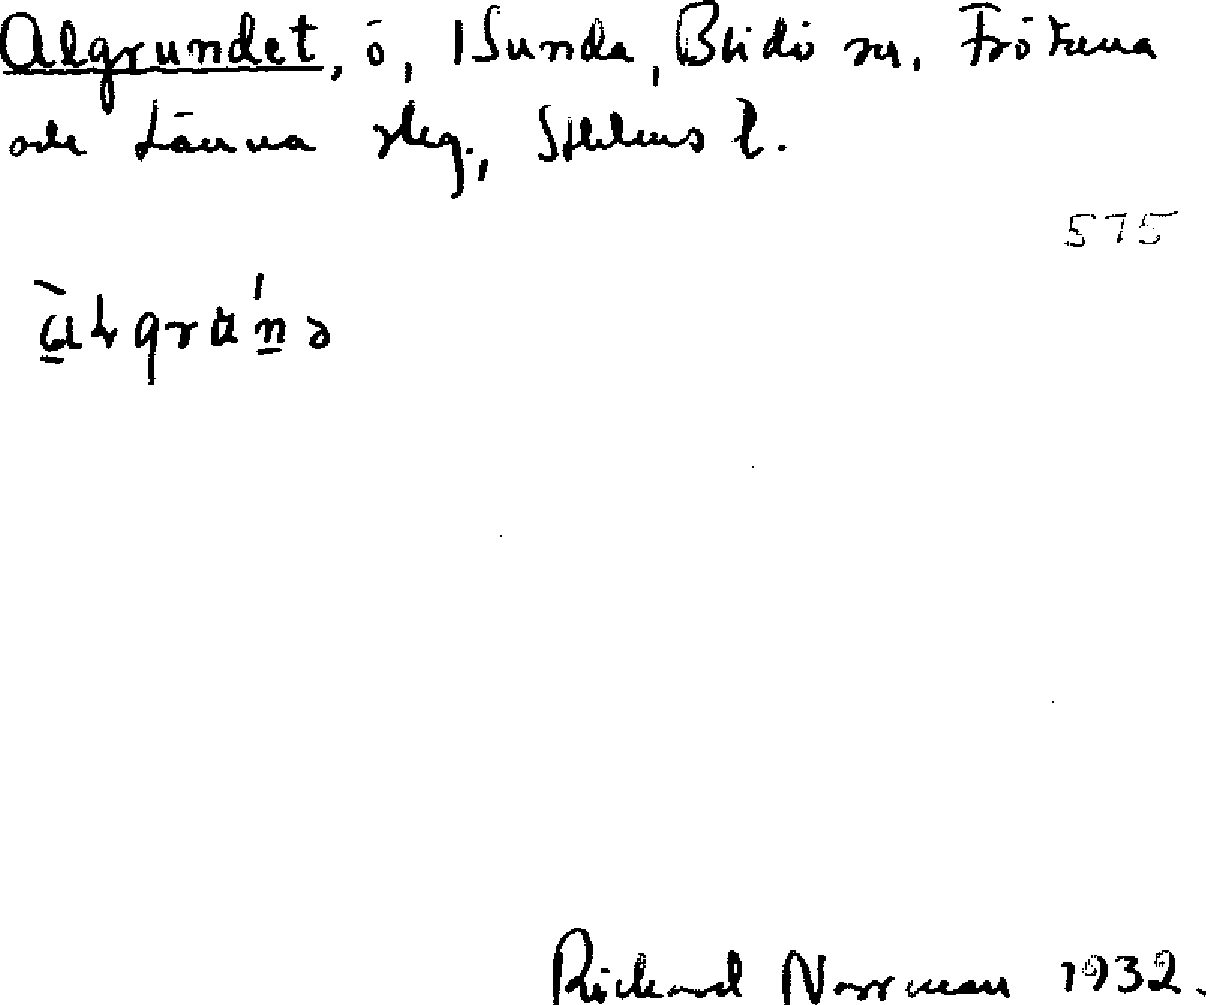 Algrundet, ö, 1 Sunda, Blidö sn, Frötuna
och Länna slg., Sthlms l.
575
Rickard Norrman 1932.